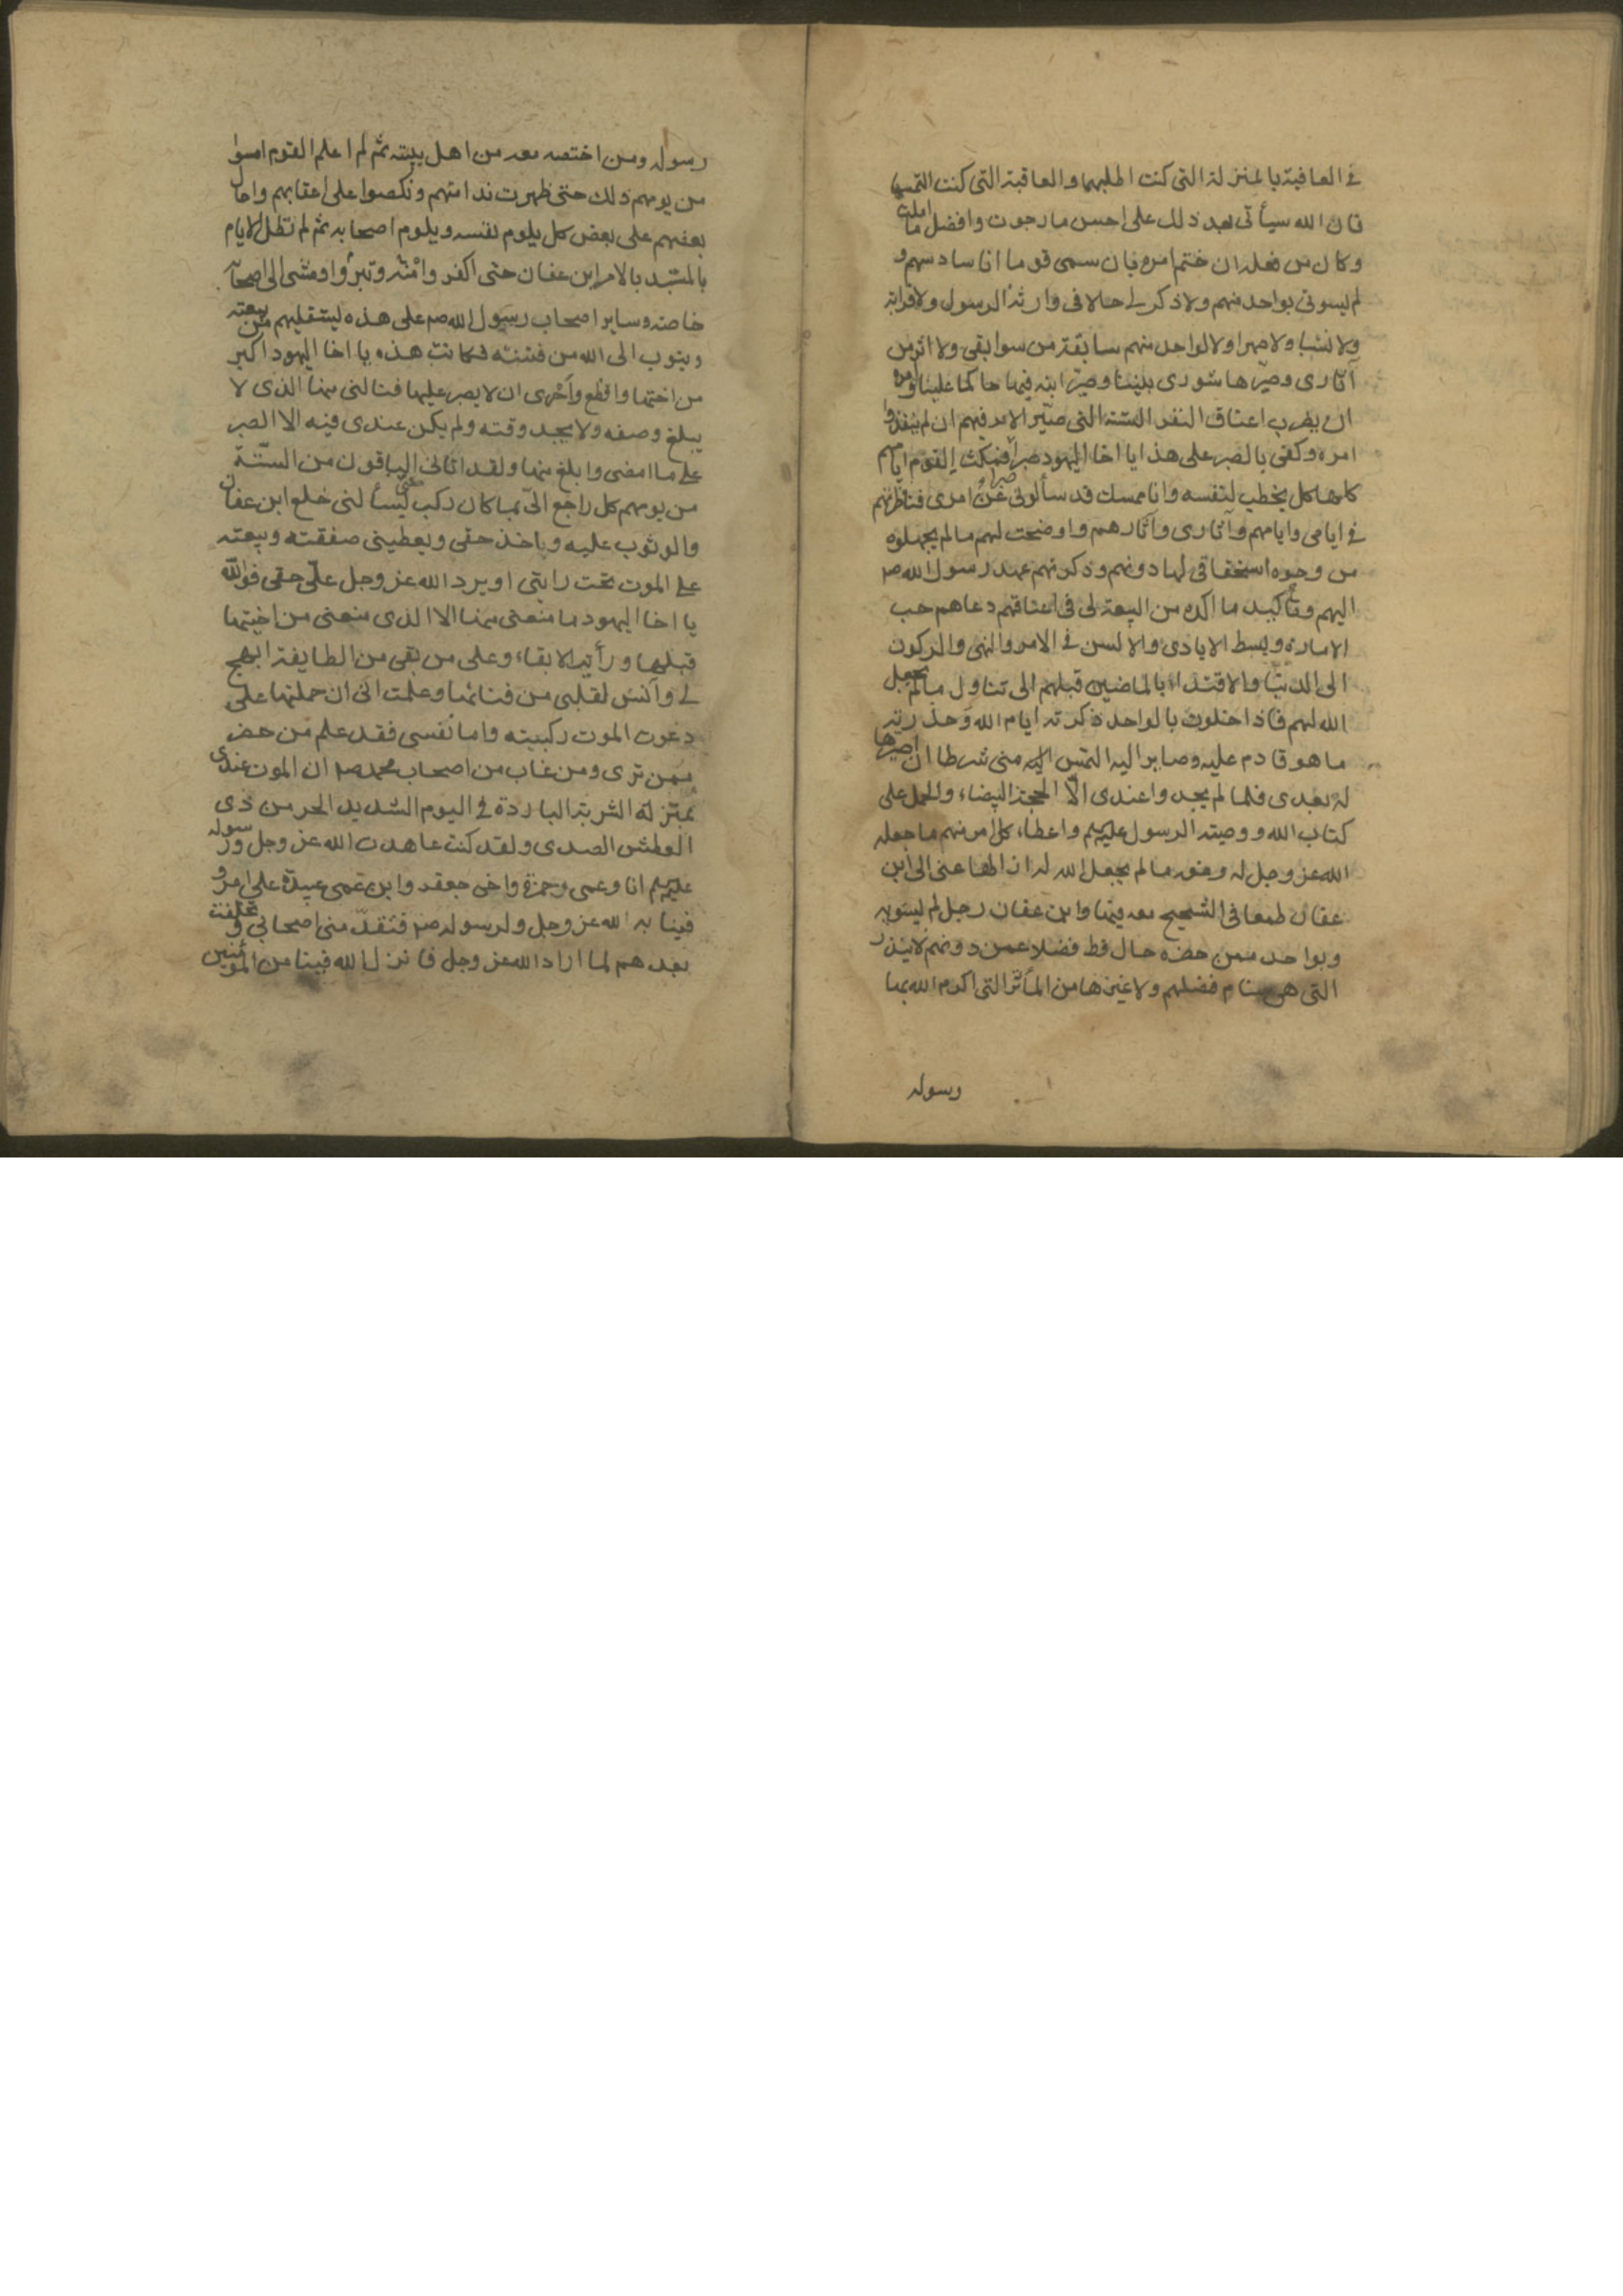 في العافية بالمنزلة التي كنت اطلبها والعاقبة التي كنت التمسها
فان الله سيأتى بعد ذلك على احسن ما رجوت وافضل ما املت
وكان من فعله ان ختم امره بان سمى قوما انا سادسهم و
لم ليسونى بواحد منهم ولا ذكر لى حالا فى وارثة الرسول ولا قرابة
ولا نسبا ولا صهرا ولا لواحد منهم سابقة من سوابقى ولا اثر من
آثارى وصيّرها شورى بيننا وصيّر ابنه فيها حاكما علينا وامره
ان يضرب اعناق النفر الستة التى صيّر الامر فيهم ان لم ينفذوا
امره وكفى بالصبر على هذا يا اخا اليهود صبرا فمكث القوم ايامهم
كلها كل يخطب لنفسه وانا ممسك قد سألونى عن امرى فناظرتهم
في ايامى وايامهم وآثارى وآثارهم واوضحت لهم ما لم يجهلوه
من وجوه استحقاقى لها دونهم وذكرتهم عهد رسول الله ص
اليهم وتأكيد ما اكده من البيعة لى فى اعناقهم دعاهم حب
الامارة وبسط الايادى والالسن في الامر والنهى والركون
الى الدنيا والاقتداء بالماضين قبلهم الى تناول ما لم يجعل
الله لهم فاذا خلوت بالواحد ذكرته ايام الله وحذرته
ما هو قادم عليه وصاير اليه التمس منى شرطا ان اصيرها
له بعدى فلما لم يجدوا عندى الّا المحجة البيضاء والحمل على
كتاب الله ووصية الرسول واعطاء كل امر منهم ما جعله
الله عز وجل له ومنعه ما لم يجعل الله له ازالها عنى الى ابن
عفان طمعا فى الشحيح معه فيها وابن عفان رجل لم ليستو به
وبواحد ممن حضره حال قط فضلا عمن دونهم لا ببدر
التى هى سنام فضلهم ولا غيرها من المآثر التى اكرم الله بها
رسوله
رسوله ومن اختصه معه من اهل بيته ثم لم اعلم القوم امسوا
من يومهم ذلك حتى ظهرت ندامتهم ونكصوا على اعقابهم واحال
بعضهم على بعض كل يلوم نفسه ويلوم اصحابه ثم لم تطل الايام
بالمستبد بالامر ابن عفان حتى اكفروه وتبرؤا ومشى الى اصحابه
خاصة وساير اصحاب رسول الله ص على هذه ليستقيلهم من بيعته
ويتوب الى الله من فتنته فكانت هذه يا اخا اليهود اكبر
من اختها وافظع واحرى ان لا يصبر عليها فنالنى منها الذى لا
يبلغ وصفه ولا يجد وقته ولم يكن عندى فيه الا الصبر
على ما امضى وابلغ منها ولقد اتانى الباقون من الستّة
من يومهم كل راجع الىّ مما كان ركب منى ليسألنى خلع ابن عفان
والوثوب عليه وياخذ حقى ويعطينى صفقته وبيعته
على الموت تحت رايتى او يرد الله عز وجل علىّ حقى فوالله
يا اخا اليهود ما منعنى منها الا الذى منعنى من اختيها
قبلها ورأيت الابقاء وعلى من بقى من الطايفة ابهج
لى وآنس لقلبى من فنائها وعلمت انى ان حملتها على
دعوت الموت ركبته واما نفسى فقد علم من حضر
ممن ترى ومن غاب من اصحاب محمد ص ان الموت عندى
بمنزلة الشربة الباردة في اليوم الشديد الحر من ذى
العطش الصدى ولقد كنت عاهدت الله عز وجل ورسوله
انا وعمى وحمزة واخى جعفر وابن عمى عبيدة على امر و
فينا به لله عز وجل ولرسوله ص فتقدّمنى اصحابى وتخلفت
بعدهم لما اراد الله عز وجل فانزل الله فينا من المؤمنين